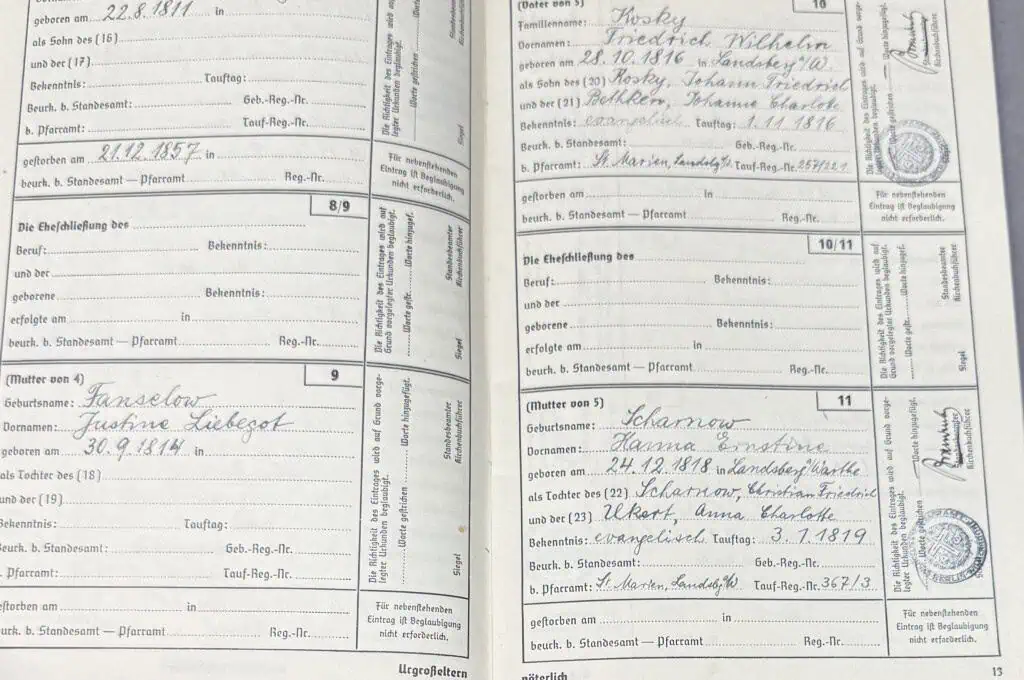 geboren am 22.8.1811 in
als Sohn des (16)
und der (17)
Bekenntnis: Tauftag:
Beurk. b. Standesamt: Geb.-Reg.-Nr.
b. Pfarramt: Tauf-Reg.-Nr.
gestorben am 21.12.1857 in
beurk. b. Standesamt — Pfarramt Reg.-Nr.
Die Richtigkeit des Eintrages wird auf Grund vorge-
legter Urkunden beglaubigt.
Worte gestrichen
Standesbeamter
Kirchenbuchführer
Siegel
Für nebenstehenden
Eintrag ist Beglaubigung
nicht erforderlich.
8/9
Die Eheschließung des
Beruf: Bekenntnis:
und der
geborene Bekenntnis:
erfolgte am in
beurk. b. Standesamt — Pfarramt Reg.-Nr.
Die Richtigkeit des Eintrages wird auf
Grund vorgelegter Urkunden beglaubigt.
Worte gestr. Worte hinzugef.
Standesbeamter
Kirchenbuchführer
Siegel
(Mutter von 4) 9
Geburtsname: Fanselow
Vornamen: Justine Liebegot
geboren am 30.9.1814 in
als Tochter des (18)
und der (19)
Bekenntnis: Tauftag:
Beurk. b. Standesamt: Geb.-Reg.-Nr.
. Pfarramt: Tauf-Reg.-Nr.
gestorben am in
beurk. b. Standesamt — Pfarramt Reg.-Nr.
Die Richtigkeit des Eintrages wird auf Grund vorge-
legter Urkunden beglaubigt.
Worte gestrichen Worte hinzugefügt.
Standesbeamter
Kirchenbuchführer
Siegel
Für nebenstehenden
Eintrag ist Beglaubigung
nicht erforderlich.
Urgroßeltern
(Vater von 5) 10
Familienname: Kosky
Vornamen: Friedrich Wilhelm
geboren am 28.10.1816 in Landsberg a/W.
als Sohn des (20) Kosky, Johann Friedrich
und der (21) Bethken, Johanne Charlotte
Bekenntnis: evangelisch Tauftag: 1.11.1816
Beurk. b. Standesamt: Geb.-Reg.-Nr.
b. Pfarramt: St. Marien, Landsbg a/W. Tauf-Reg.-Nr. 257/221
gestorben am in
beurk. b. Standesamt — Pfarramt Reg.-Nr.
Die Richtigkeit des Eintrages wird auf Grund vorge-
legter Urkunden beglaubigt.
Worte gestrichen Worte hinzugefügt.
Für nebenstehenden
Eintrag ist Beglaubigung
nicht erforderlich.
10/11
Die Eheschließung des
Beruf: Bekenntnis:
und der
geborene Bekenntnis:
erfolgte am in
beurk. b. Standesamt — Pfarramt Reg.-Nr.
Die Richtigkeit des Eintrages wird auf
Grund vorgelegter Urkunden beglaubigt.
Worte gestr. Worte hinzugef.
Standesbeamter
Kirchenbuchführer
Siegel
(Mutter von 5) 11
Geburtsname: Scharnow
Vornamen: Hanna Ernstine
geboren am 24.12.1818 in Landsberg/Warthe
als Tochter des (22) Scharnow, Christian Friedrich
und der (23) Ukert, Anna Charlotte
Bekenntnis: evangelisch Tauftag: 3.1.1819
Beurk. b. Standesamt: Geb.-Reg.-Nr.
b. Pfarramt: St. Marien, Landsbg a/W Tauf-Reg.-Nr. 367/3
gestorben am in
beurk. b. Standesamt — Pfarramt Reg.-Nr.
Die Richtigkeit des Eintrages wird auf Grund vorge-
legter Urkunden beglaubigt.
Worte gestrichen Worte hinzugefügt.
Standesbeamter
Kirchenbuchführer
BERLIN
Für nebenstehenden
Eintrag ist Beglaubigung
nicht erforderlich.
väterlich
13